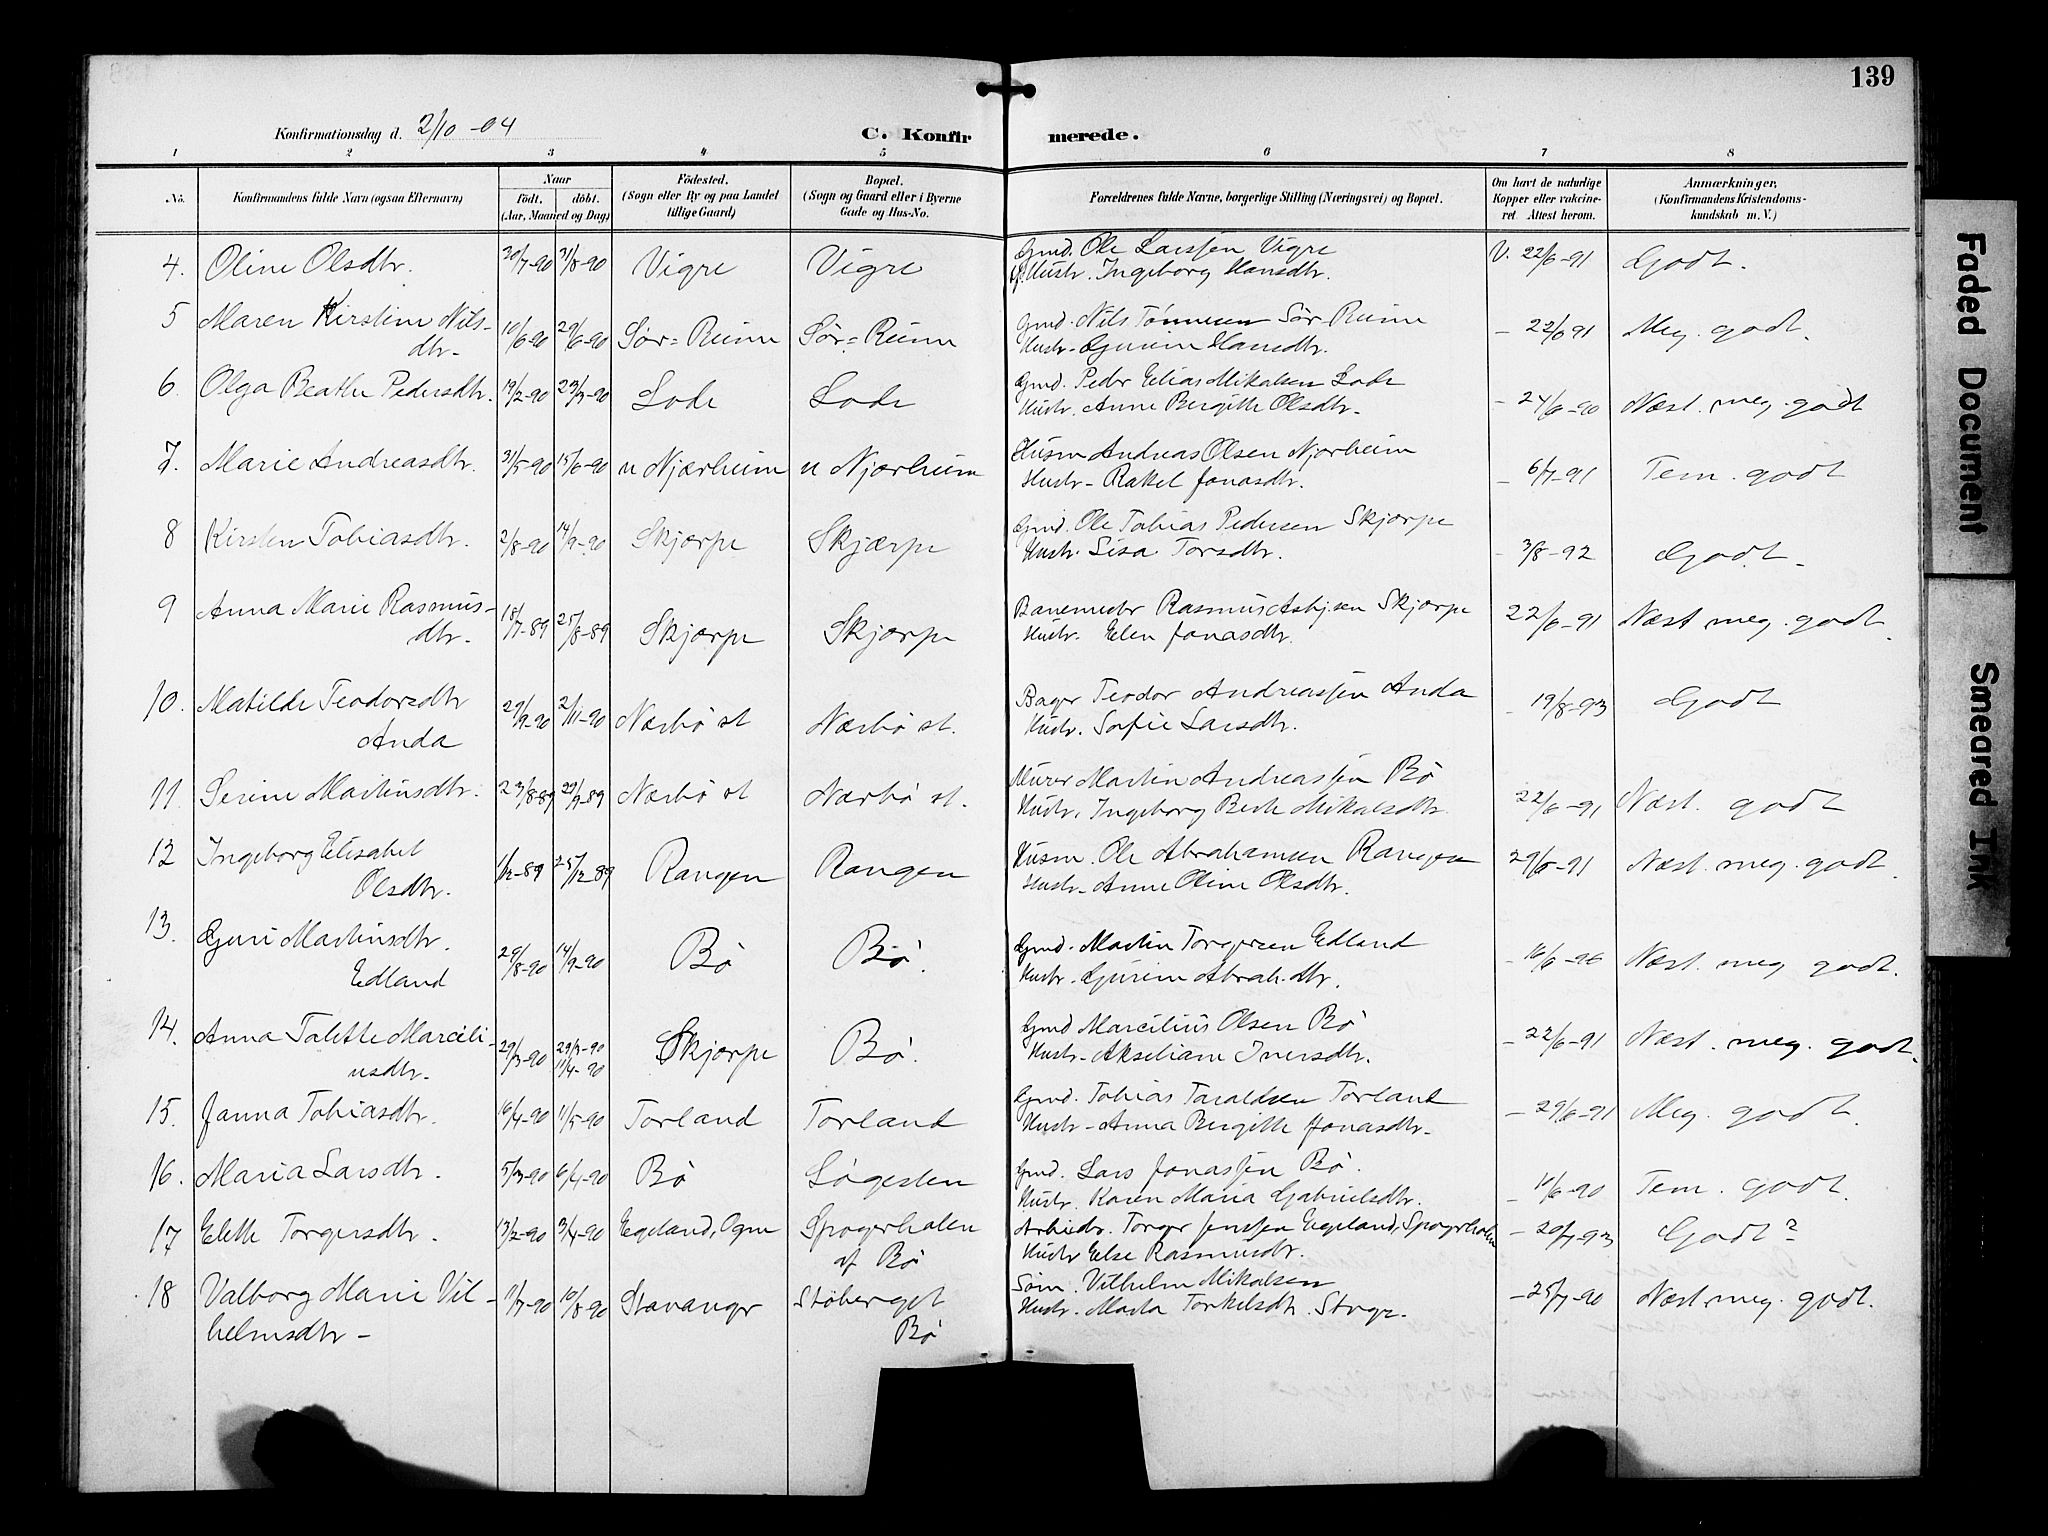 139
Konfirmationsdag d. 2/10 -04
C. Konfirmerede.
1 2 3 4 5 6 7 8
No. Konfirmandens fulde Navn (ogsaa Efternavn) Naar Födt. döbt. (Aar, Maaned og Dag) Födested. (Sogn eller By og paa Landet tillige Gaard) Bopæl. (Sogn og Gaard eller i Byerne Gade og Hus-No. Forældrenes fulde Navne, borgerlige Stilling (Næringsvei) og Bopæl. Om havt de naturlige Kopper eller vaccineret Attest herom. Anmærkninger, (Konfirmandens Kristendomskundskab m. V.)
4. Oline Olsdtr. 30/7-90 31/8-90 Vigre Vigre Gmd. Ole Larssen Vigre V. 22/6-91 Godt.
Hustr. Ingeborg Hansdtr.
5 Maren Kirstine Nils- 10/6-90 29/6-90 Sör=Reime Sör=Reime Gmd. Nils Tönnesen Sör-Reime - 22/6 91 Meg. godt.
dtr. Hustr. Gurine Hansdtr.
6. Olga Beathe Pedersdtr. 19/2-90 23/3-90 Lode Lode Gmd. Peder Elias Mikalsen Lode - 24/6-90 Næst. meg. godt
Hustr. Anne Bergitte Olsdtr.
7. Marie Andreasdtr. 31/5-90 15/6-90 n Njærheim n Njærheim Husm Andreas Olsen Njærheim - 6/7-91 Tem. godt
Hustr- Rakel Jonasdtr.
8 Kirsten Tobiasdtr. 2/8-90 14/9-90 Skjærpe Skjærpe Gmd. Ole Tobias Pedersen Skjærpe - 3/8-92 Godt.
Hustr. Lisa Torsdtr.
9 Anna Marie Rasmus- 18/7-89 25/8-89 Skjærpe Skjærpe Banemester Rasmus Asbjsen Skjærpe 22/6-91 Næst meg. godt.
dtr. Hustr. Elen Jonasdtr.
10. Matilde Teodorsdtr 29/9-90 2/11-90 Nærbö st Nærbö st. Bager Teodor Andreassen Anda - 19/8-93 Godt
Anda Hustr. Sofie Larsdtr.
11. Serine Martinsdtr. 23/8-89 29/9-89 Nærbö st Nærbö st. Murer Martin Andreassen Bö 22/6-91 Næst. godt
Hustr. Ingeborg Berte Mikalsdtr.
12 Ingeborg Elisabet 1/12-89 25/12-89 Rangen Rangen Husm. Ole Abrahamsen Rangen 29/6-91 Næst. meg. godt.
Olsdtr. Hustr- Anne Oline Olsdtr.
13. Guri Martinsdtr. 29/8-90 14/9-90 Bö Bö. Gmd. Martin Torgersen Edland - 16/6-96 Næst. meg godt.
Edland Hustr. Gurine Abrah.dtr.
14. Anna Talette Marcili- 29/3-90 29/3-90 11/4-90 Skjærpe Bö. Gmd Marcilius Olsen Bö - 22/6-91 Næst. meg. godt.
usdtr. Hustr- Akseliane Iversdtr.
15. Janna Tobiasdtr. 16/4-90 11/5-90 Torland Torland Gmd. Tobias Taraldsen Torland - 29/6-91 Meg. godt.
Hustr- Anna Bergitte Jonasdtr.
16. Maria Larsdtr. 5/3-90 6/4-90 Bö Lögesten Gmd. Lars Jonassen Bö. - 10/6-90 Tem. godt.
Hustr. Karen Maria Gabrielsdtr.
17 Elette Torgersdtr. 13/2-90 3/4-90 Egeland, Ogne Spogerhalen Arbeidr. Torger Jenssen Eegeland, Spogerhalen - 20/7-93 Godt?
af Bö Hustr Else Rasmusdtr.
18 Valborg Marie Vil- 11/7-90 10/8-90 Stavanger Stöberget Söm. Vilhelm Mikalsen - 25/7-90 Næst. meg. godt.
helmsdtr- Bö Hustr. Marta Torkelsdtr. Stvgr.
Faded Document
Smeared Ink